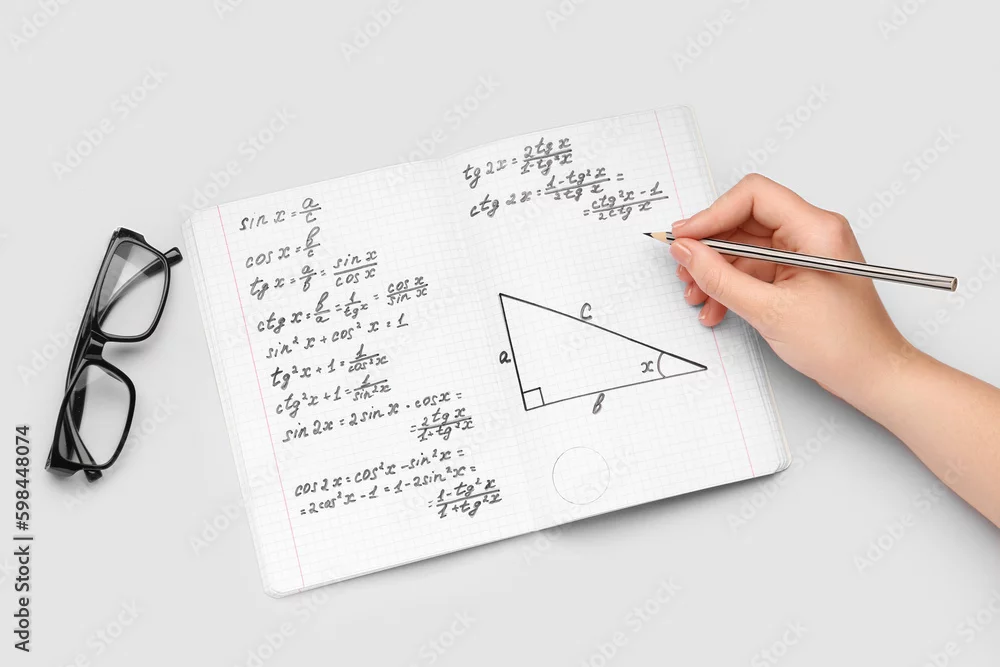 sin x = a/c
cos x = b/c
tg x = a/b = sin x/cos x
ctg x = b/a = 1/tg x = cos x/sin x
sin² x + cos² x = 1
tg² x + 1 = 1/cos² x
ctg² x + 1 = 1/sin² x
sin 2x = 2 sin x · cos x =
= 2 tg x/1 + tg² x
cos 2x = cos² x - sin² x =
= 2cos² x - 1 = 1 - 2 sin² x =
= 1 - tg² x/1 + tg² x
tg 2x = 2 tg x/1 - tg² x
ctg 2x = 1 - tg² x/2 tg x =
= ctg² x - 1/2 ctg x
c
a
x
b
Adobe Stock | #598448074
Adobe Stock